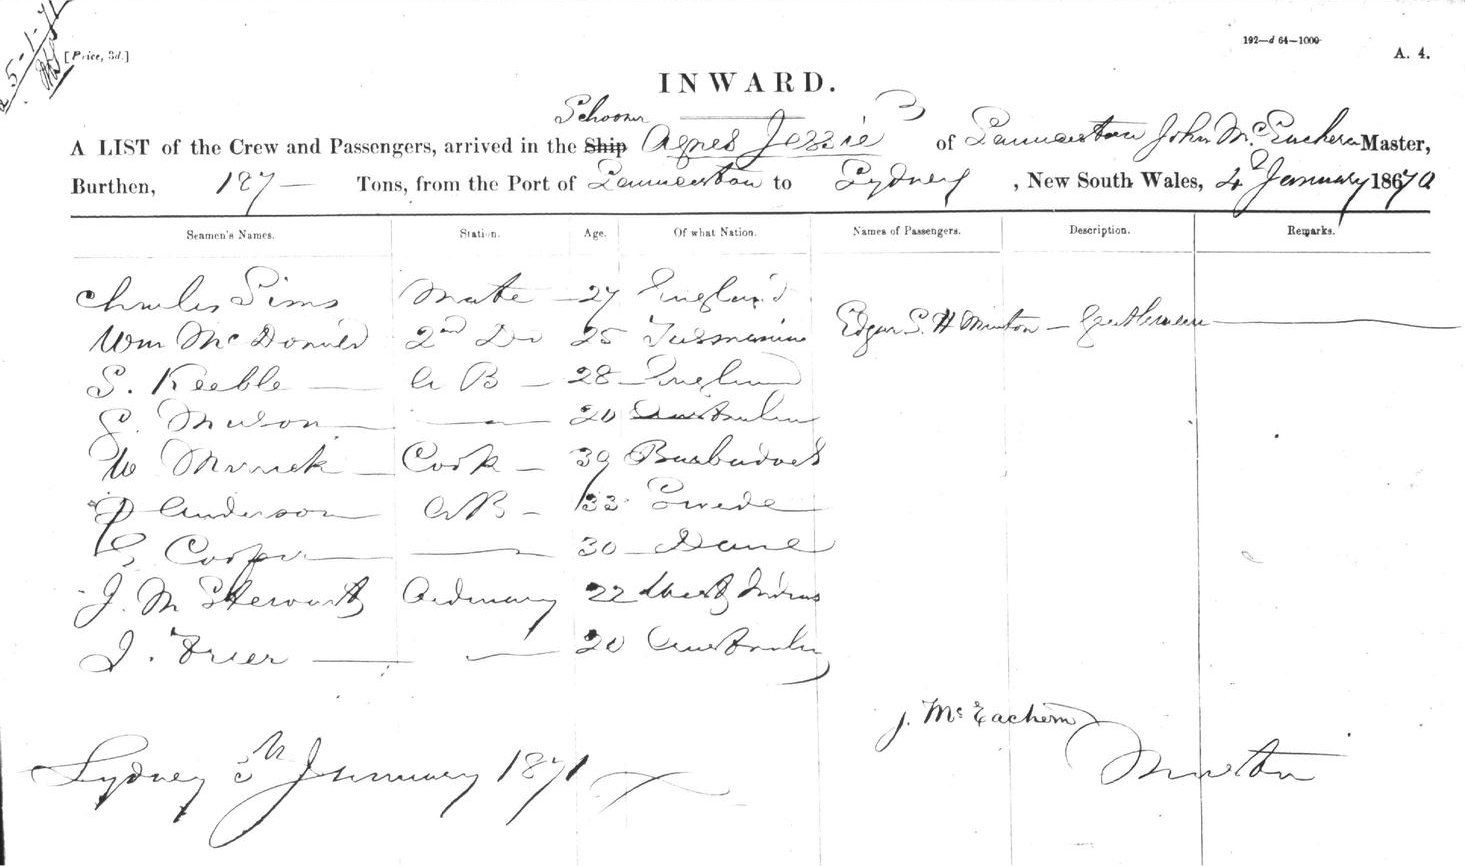 5-1-71
[Price, 3d.]
192—d 64—1000
A. 4.
INWARD.
Schooner
A LIST of the Crew and Passengers, arrived in the Ship Agnes Jessie of Launceston John McEachern Master,
Burthen, 127 — Tons, from the Port of Launceston to Sydney, New South Wales, 4th January 1867
Seamen's Names. Station. Age. Of what Nation. Names of Passengers. Description. Remarks.
Charles Sims Mate 27 England
Wm McDonald 2nd Do 25 Tasmania Edgar S. H Minton — Gentleman
S. Keeble — AB — 28 England
20 Australia
W Cook — 39 Barbadoes
P Anderson AB — 33 Swede
Cooper — 30 Dane
J. M Stewart Ordinary 22 West Indies
J. Frier — 20 Australia
J. McEachern
Sydney 5th January 1871